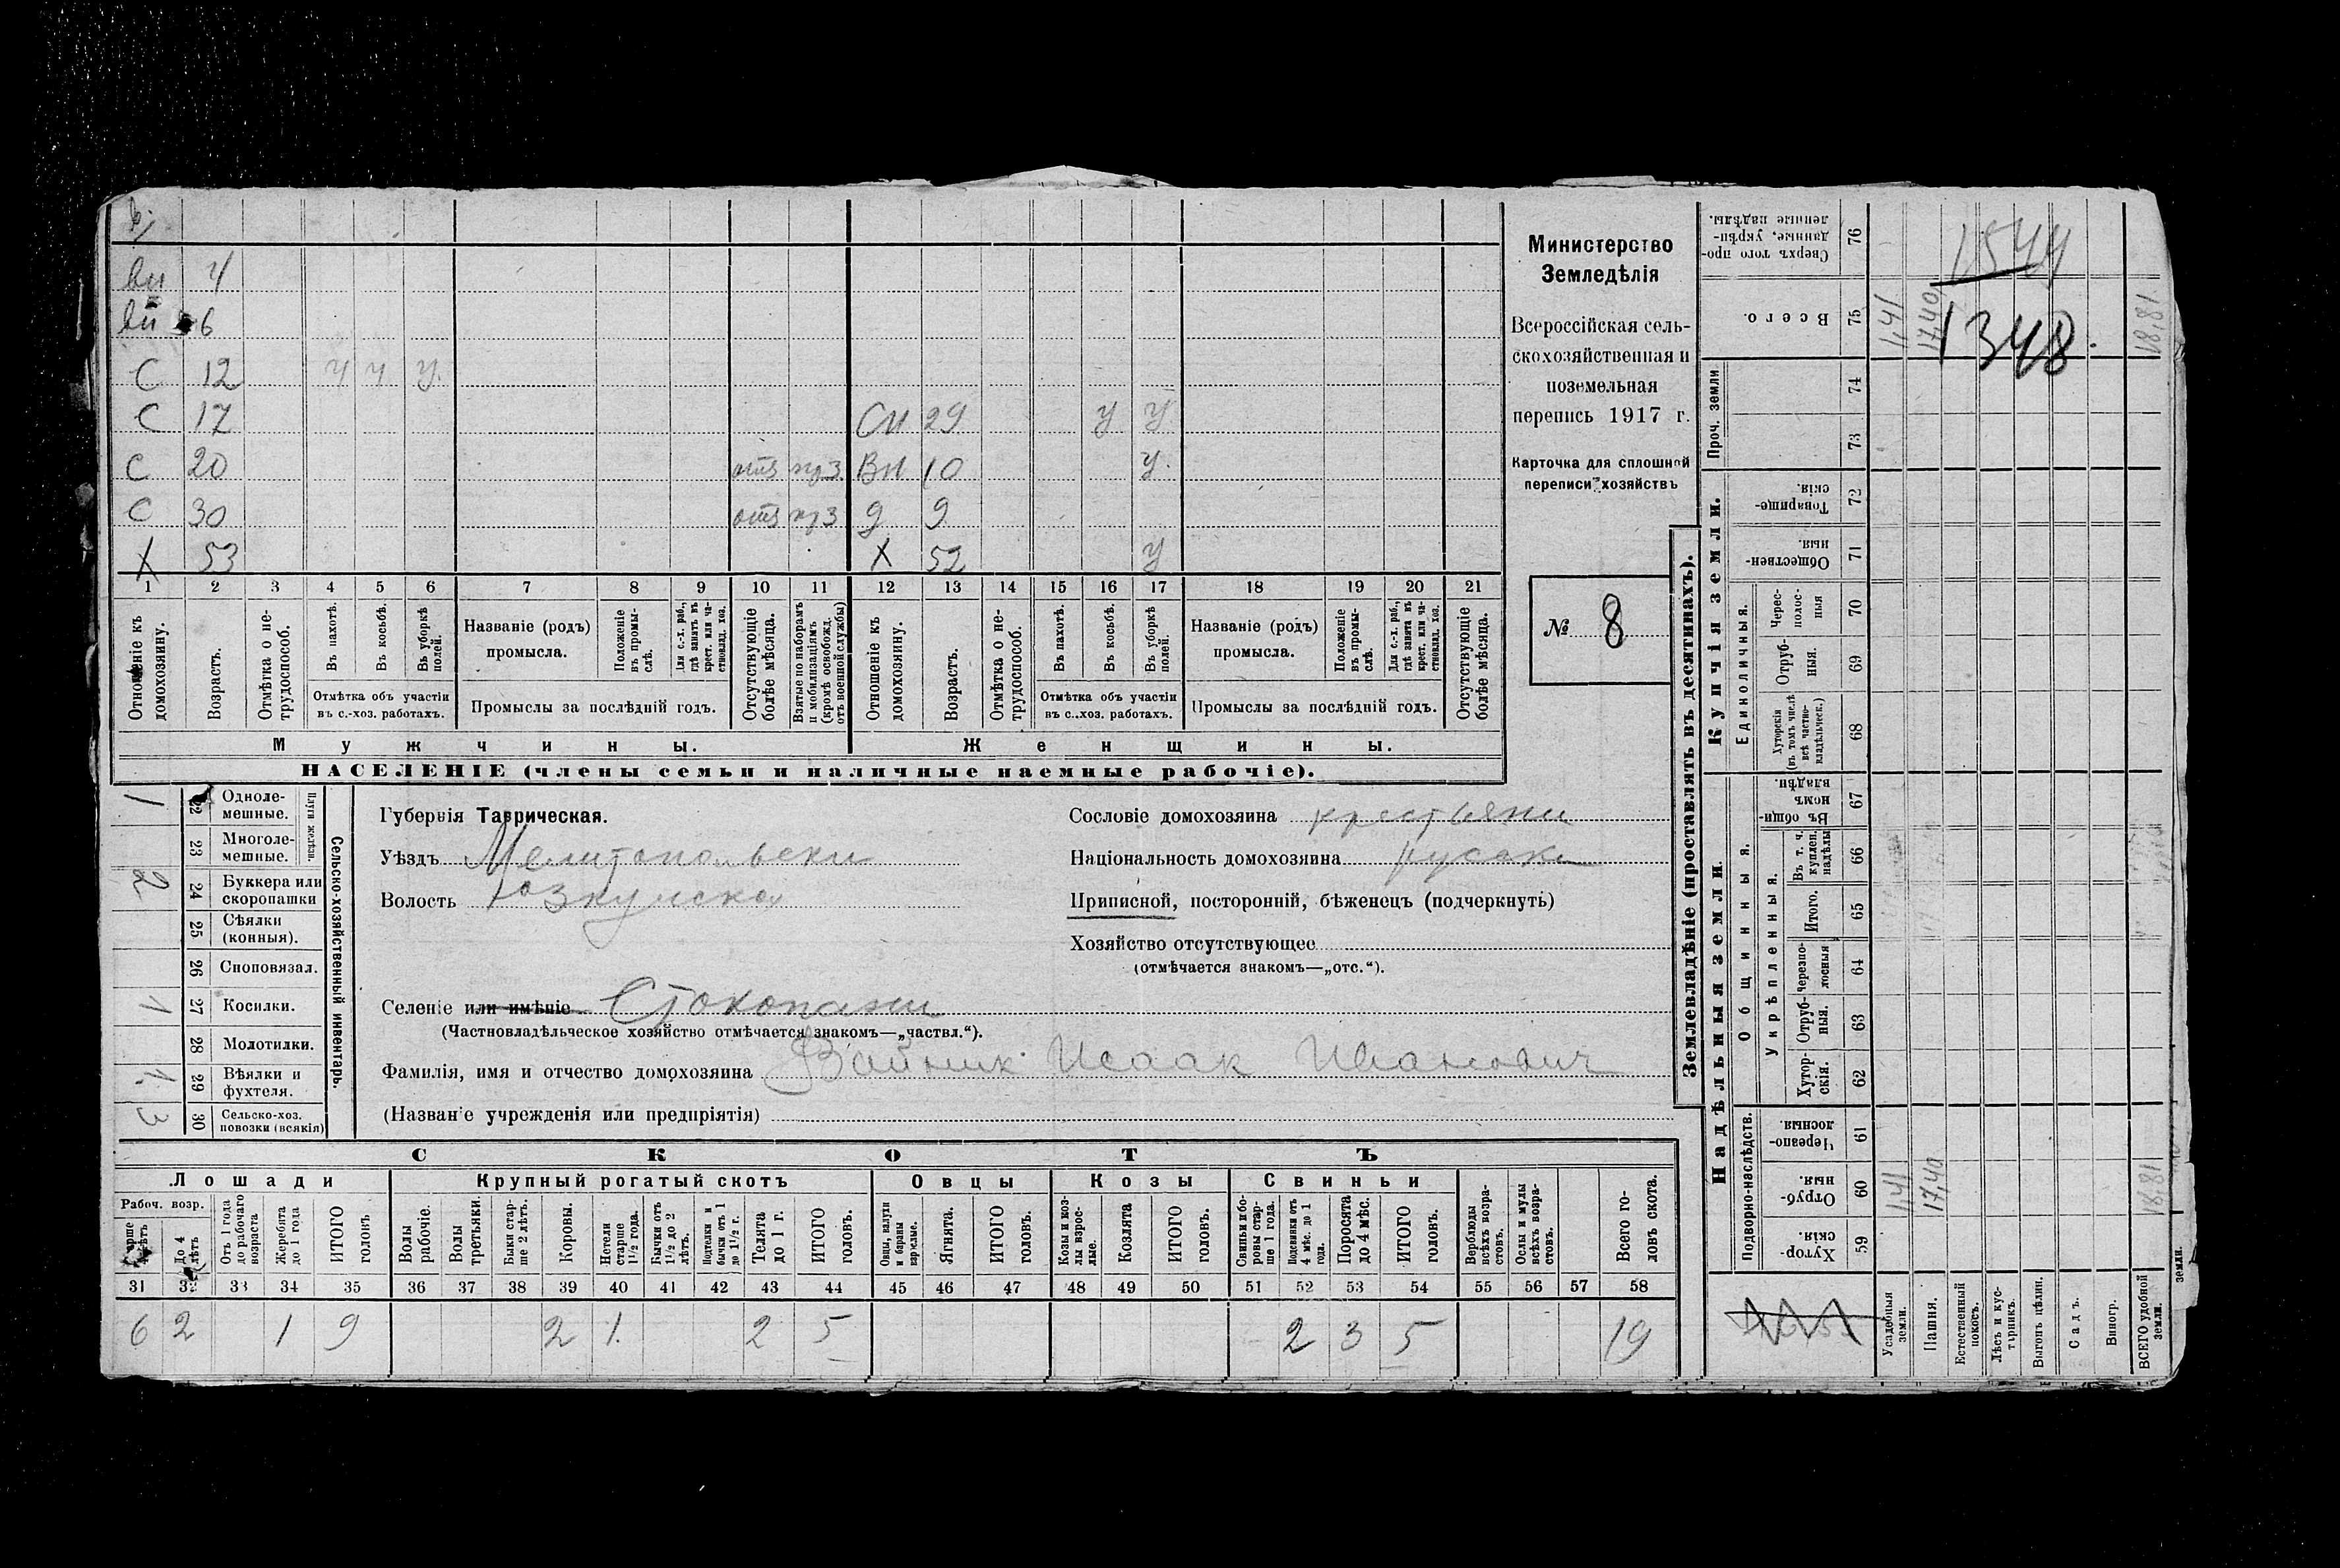 вн 4
вн 6
С 12 ч ч у.
С 17 СН 29 у у
С 20 отс ВН 10 у.
С 30 отс д 9
Х 53 Х 52 у
1 2 3 4 5 6 7 8 9 10 11 12 13 14 15 16 17 18 19 20 21
Отношеніе къ домохозяину.
Возрастъ.
Отмѣтка о нетрудоспособ.
Въ пахотѣ.
Въ косьбѣ.
Въ уборкѣ полей.
Отмѣтка объ участіи
въ с.-хоз. работахъ.
Названіе (родъ)
промысла.
Положеніе въ промыслѣ.
Для с.-х. раб., гдѣ занятъ въ крест. или частновлад. хоз.
Промыслы за послѣдній годъ.
Отсутствующіе болѣе мѣсяца.
Взятые по наборамъ и мобилизаціямъ (кромѣ освобожд. отъ военной службы)
Отношеніе къ домохозяину.
Возрастъ.
Отмѣтка о нетрудоспособ.
Въ пахотѣ.
Въ косьбѣ.
Въ уборкѣ полей.
Отмѣтка объ участіи
въ с.-хоз. работахъ.
Названіе (родъ)
промысла.
Положеніе въ промыслѣ.
Для с.-х. раб., гдѣ занята въ крест. или частновлад. хоз.
Промыслы за послѣдній годъ.
Отсутствующіе болѣе мѣсяца.
Мужчины.
Женщины.
НАСЕЛЕНІЕ (члены семьи и наличные наемные рабочіе).
Министерство
Земледѣлія
Всероссійская сель-
скохозяйственная и
поземельная
перепись 1917 г.
Карточка для сплошной
переписи хозяйствъ
№ 8
Сельско-хозяйственный инвентарь.
Плуги желѣзн.
1 22 Одноле-
мешные.
23 Многоле-
мешные.
2 24 Буккера или
скоропашки
25 Сѣялки
(конныя).
26 Сноповязал.
1 27 Косилки.
28 Молотилки.
1. 29 Вѣялки и
фухтеля.
3 30 Сельско-хоз.
повозки (всякія)
Губернія Таврическая.
Уѣздъ Мелитопольски
Волость Юзкуйска
Селеніе или имѣніе Стокопани
(Частновладѣльческое хозяйство отмѣчается знакомъ—„частвл.“).
Фамилія, имя и отчество домохозяина Вайник Исаак Иванович
(Названіе учрежденія или предпріятія)
Сословіе домохозяина крестьяни
Національность домохозяина русски
Приписной, посторонній, бѣженецъ (подчеркнуть)
Хозяйство отсутствующее
(отмѣчается знакомъ—„отс.“).
СКОТЪ
Лошади
Крупный рогатый скотъ
Овцы
Козы
Свиньи
Рабоч. возр.
До 4 лѣтъ
Отъ 1 года до рабочаго возраста
Жеребята до 1 года
ИТОГО головъ
Волы рабочіе.
Волы третьяки.
Быки старше 2 лѣтъ.
Коровы.
Нетели старше 1½ года.
Бычки отъ 1½ до 2 лѣтъ.
Подтелки и бычки отъ 1 до 1½ г.
Телята до 1 г.
ИТОГО головъ.
Овцы, валухи и бараны взрослые.
Ягнята.
ИТОГО головъ.
Козы и козлы взрослые.
Козлята
ИТОГО головъ.
Свиньи и боровы старше 1 года.
Подсвинки отъ 4 мѣс. до 1 года.
Поросята до 4 мѣс.
ИТОГО головъ.
Верблюды всѣхъ возрастовъ.
Ослы и мулы всѣхъ возрастовъ.
Всего головъ скота.
31 32 33 34 35 36 37 38 39 40 41 42 43 44 45 46 47 48 49 50 51 52 53 54 55 56 57 58
6 2 1 9 2 1. 2 5 2 3 5 19
Землевладѣніе (проставлять въ десятинахъ).
Надѣльныя земли
Купчія земли.
Подворно-наслѣдств.
Общинныя.
Укрѣпленныя.
Единоличныя.
Проч. земли
Хуторскія. 59
Отрубныя. 60 1,41 17,40 18,81
Черезполосныя. 61
Хуторскія. 62
Отрубныя. 63
Черезполосныя 64
Итого. 65
Въ т. ч. куплен. надѣлы 66
Въ общинномъ владѣн. 67
Хуторскія (въ томъ числѣ всѣ частновладѣльческ.) 68
Отрубныя. 69
Чересполосныя 70
Общественныя. 71
Товарищескія. 72
73
74
Всего. 75 1,41 17,40 18,81
Сверхъ того проданные, укрѣпленные надѣлы. 76
1544
1348.
Усадебныя земли.
Пашня.
Естественный покосъ.
Лѣсъ и кустарникъ.
Выгонъ цѣлин.
Садъ.
Виногр.
ВСЕГО удобной земли.
земли.